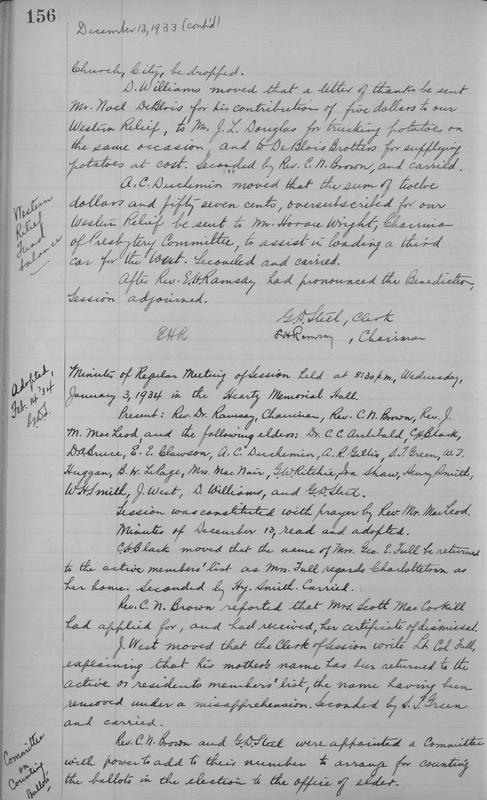 156
December 13, 1933 (cont'd)
Church, City, be dropped.
D. Williams moved that a letter of thanks be sent
Mr. Noel DeBlois for his contribution of five dollars to our
Western Relief, to Mr. J. L. Douglas for trucking potatoes on
the same occasion, and to DeBlois Brothers for supplying
potatoes at cost. Seconded by Rev. C. N. Brown, and carried.
A. C. Duchemin moved that the sum of twelve
dollars and fifty seven cents, oversubscribed for our
Western Relief be sent to Mr. Horace Wright, Chairman
of Presbytery Committee, to assist in loading a third
car for the West. Seconded and carried.
Western
Relief
Fund
balance
After Rev. E. H. Ramsay had pronounced the Benediction,
Session adjourned.
G. D. Steel, Clerk
EHR
E H Ramsay, Chairman
Adopted,
Feb. 14 '34
G.D.S.
Minutes of Regular Meeting of Session held at 8:30 p.m., Wednesday,
January 3, 1934 in the Heartz Memorial Hall.
Present: Rev. Dr. Ramsay, Chairman, Rev. C. N. Brown, Rev. J.
M. MacLeod and the following elders: Dr. C. C. Archibald, C. H. Black,
D. A. Bruce, E. E. Clawson, A. C. Duchemin, A. R. Gettis, S. T. Green, W. T.
Huggan, B. W. LePage, Mrs. MacNair, G. W. Ritchie, Ira Shaw, Henry Smith,
W. H. Smith, J. West, D. Williams, and G. D. Steel.
Session was constituted with prayer by Rev. Mr. MacLeod.
Minutes of December 13, read and adopted.
C. H. Black moved that the name of Mrs. Geo. E. Full be returned
to the active members' list as Mrs. Full regards Charlottetown as
her home. Seconded by Hy. Smith. Carried.
Rev. C. N. Brown reported that Mrs. Scott MacCorkill
had applied for, and had received, her certificate of dismissal.
J. West moved that the Clerk of Session write Lt. Col. Full,
explaining that his mother's name has been returned to the
active or residents members' list, the name having been
removed under a misapprehension. Seconded by S. T. Green
and carried.
Committee
on
Counting
Ballots
Rev. C. N. Brown and G. D. Steel were appointed a Committee
with power to add to their number to arrange for counting
the ballots in the election to the office of elder.